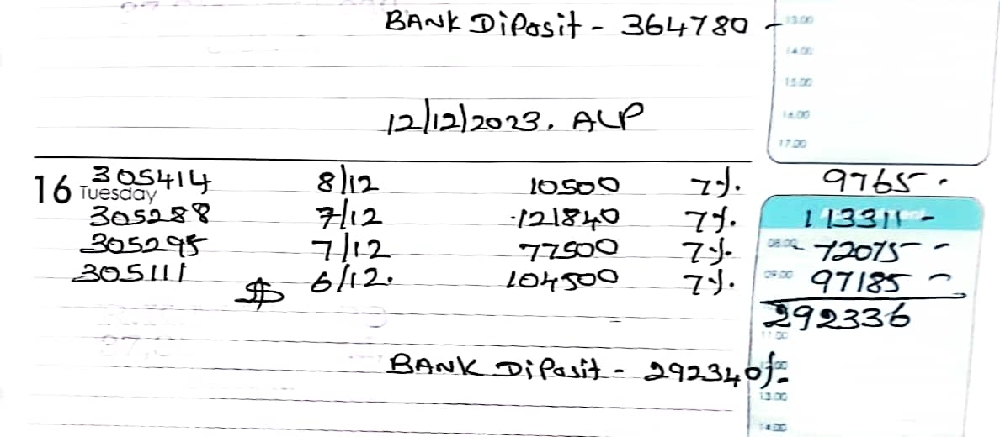 BANK Diposit - 364780 -
13.00
14.00
15.00
16.00
17.00
12/12/2023. ALP
16 Tuesday
305414 8/12 10500 7%. 9765 -
305288 7/12 121840 7%. 113311 -
305295 7/12 77500 7%. 08.00 72075 -
305111 $ 6/12. 104500 7%. 09.00 97185 -
292336
11.00
BANK Diposit - 292340/-
13.00
14.00